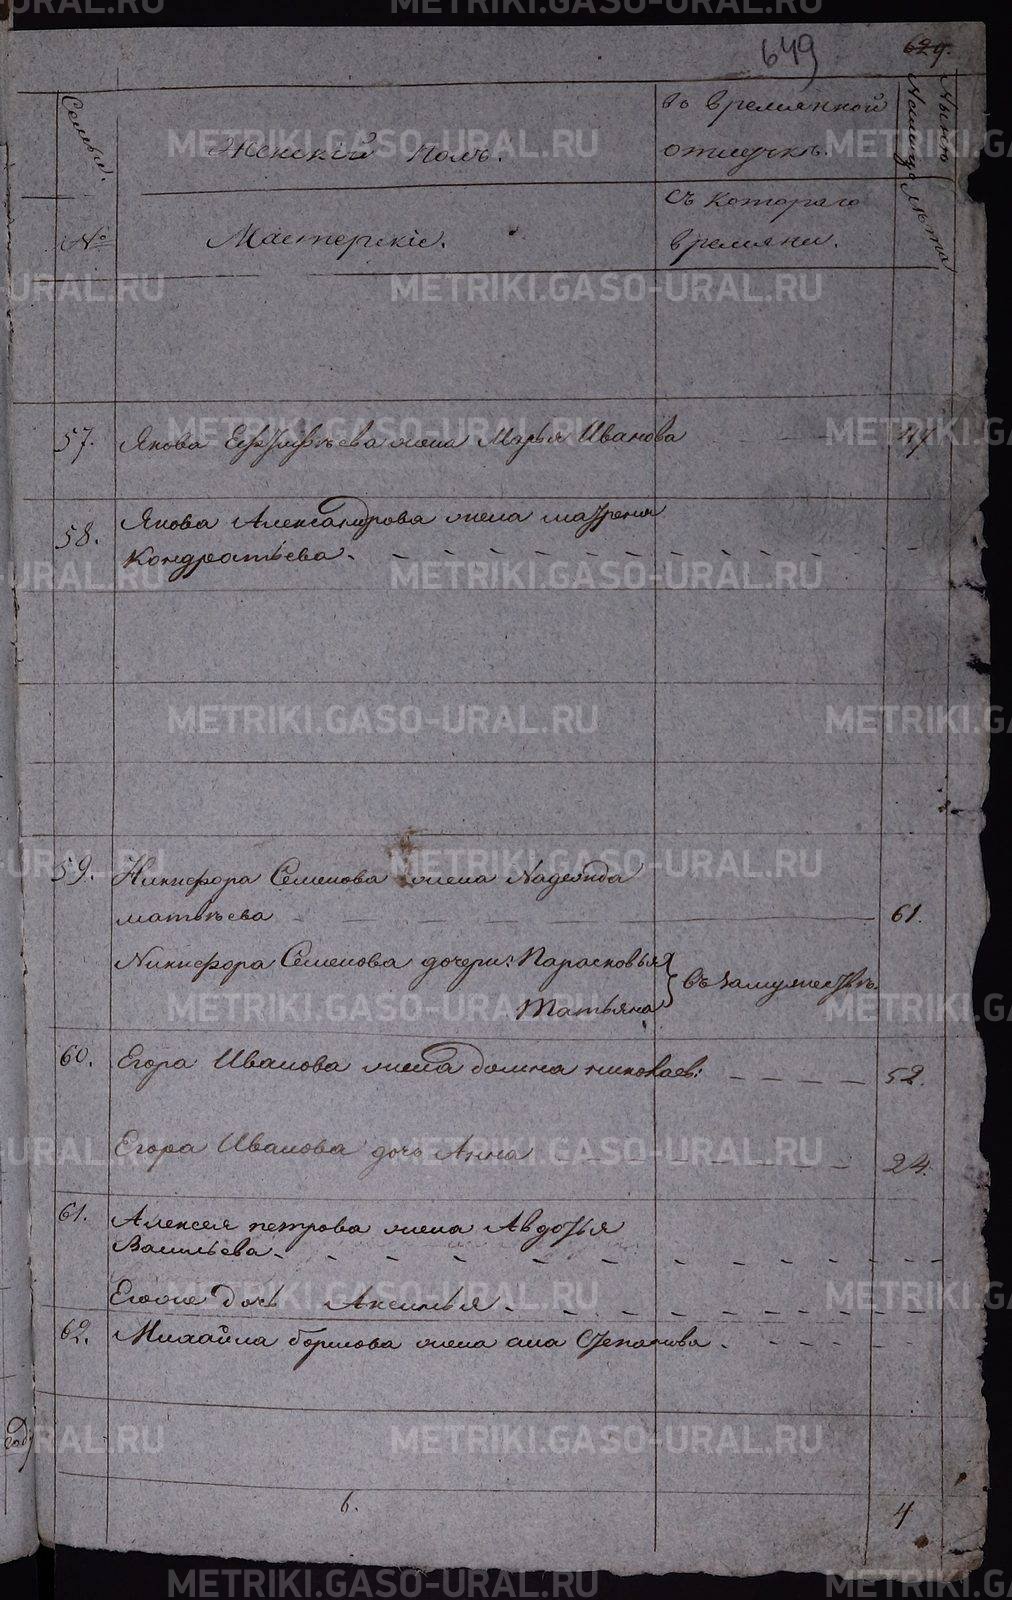 649
629.
Семьи.
Женскій полъ.
во времянной
отлучкѣ.
Нынѣ
На лицо
лѣта
№
Мастерскіе.
съ котораго
времяни.
57. Якова Ефимьева жена Марья Иванова
58. Якова Александрова жена матрена
Кондратьева.
59. Никифора Семенова жена Надежда
матвѣева 61.
Никифора Семенова дочери: Парасковья
Татьяна
въ замужествѣ.
60. Егора Иванова жена домна николаев: 52.
Егора Иванова дочь Анна 24.
61. Алексея петрова жена Авдотья
Васильева.
Егоже дочь Аксинья.
62. Михайла борисова жена ана Степанова.
6. 4
METRIKI.GASO-URAL.RU